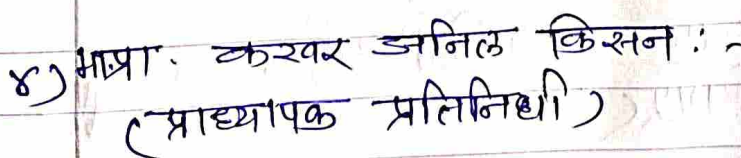 ४) मा.प्रा. करवर अनिल किसन : -
(प्राध्यापक प्रतिनिधी)